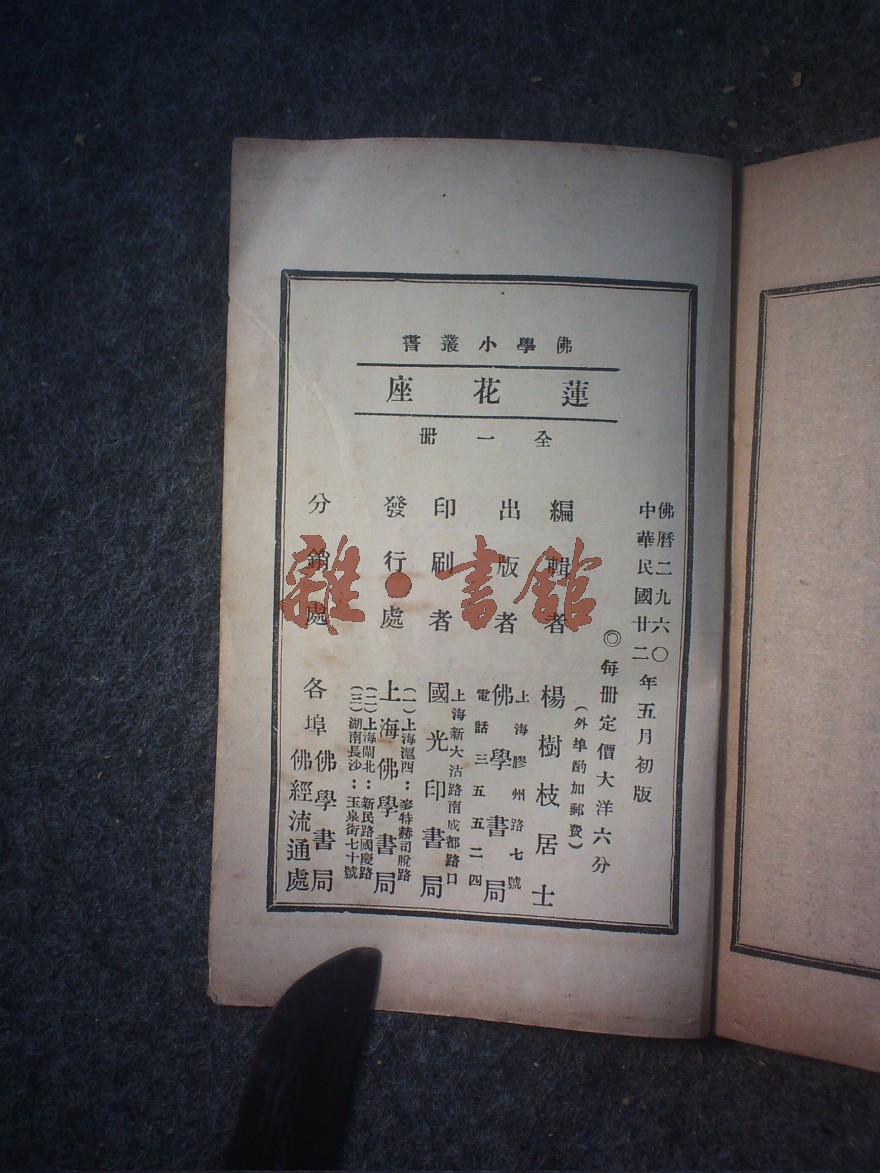 佛學小叢書
蓮花座
全一冊
佛曆二九六〇年五月初版
中華民國廿二年五月初版
◎每冊定價大洋六分
(外埠酌加郵費)
編輯者 楊樹枝居士
出版者 佛學書局
上海膠州路七號
電話三五五二四
印刷者 國光印書局
上海新大沽路南成都路口
發行處 上海佛學書局
(一)上海滬西:麥特赫司脫路
(二)上海閘北:新民路國慶路
(三)湖南長沙:玉泉街七十號
分銷處 各埠佛學書局
佛經流通處
雜·書館